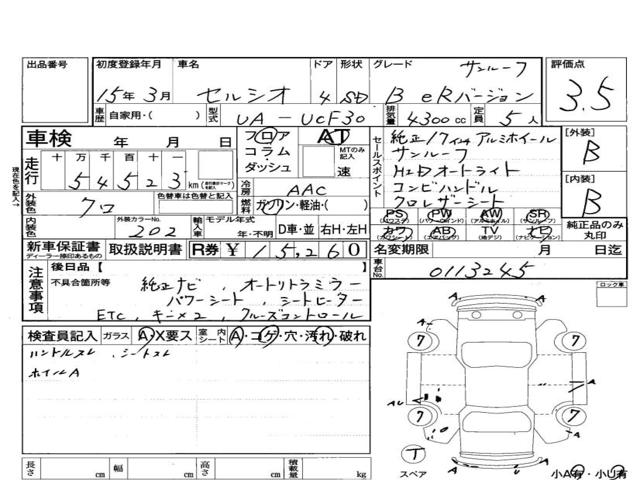 出品番号 初度登録年月 車名 ドア 形状 グレード サンルーフ 評価点
15年 3月 セルシオ 4 SD B eRバージョン 3.5
車歴 自家用・( ) 型式 UA-UCF30 排気量 4300cc 定員 5人
車検 年 月 日 フロア コラム・ダッシュ AT MTのみ記入 速
セールスポイント
純正17インチアルミホイール
サンルーフ
HIDオートライト
コンビハンドル
クロレザーシート
[外装] B
[内装] B
現在色を記入→
走行 十万千百十一 54523 km
冷房 AAC
外装色 クロ 色替車は色替と記入 燃料 ガソリン・軽油・( )
内装色 外装カラーNo. 202 輸入車 モデル年式 年・不明 D車・並 右H・左H
PS PW AW SR
カワ AB TV ナビ
純正品のみ丸印
新車保証書 ディーラー捺印あるもの 取扱説明書 R券 ¥ 15,260
名変期限 月 日迄
車台No. 0113245
注意事項 後日品[ ]
不具合箇所等
純正ナビ、オートリトラミラー
パワーシート、シートヒーター
ETC、キー×2、クルーズコントロール
ロック車
検査員記入 ガラス A・X要ス 室内シート A・コゲ・穴・汚れ・破れ
ハンドルスレ、シートスレ
ホイルA
A A
7 7
A
AU
7 7
A
T
スペア
A A
小A有・小U有
長さ cm 幅 cm 高さ cm 積載量 kg